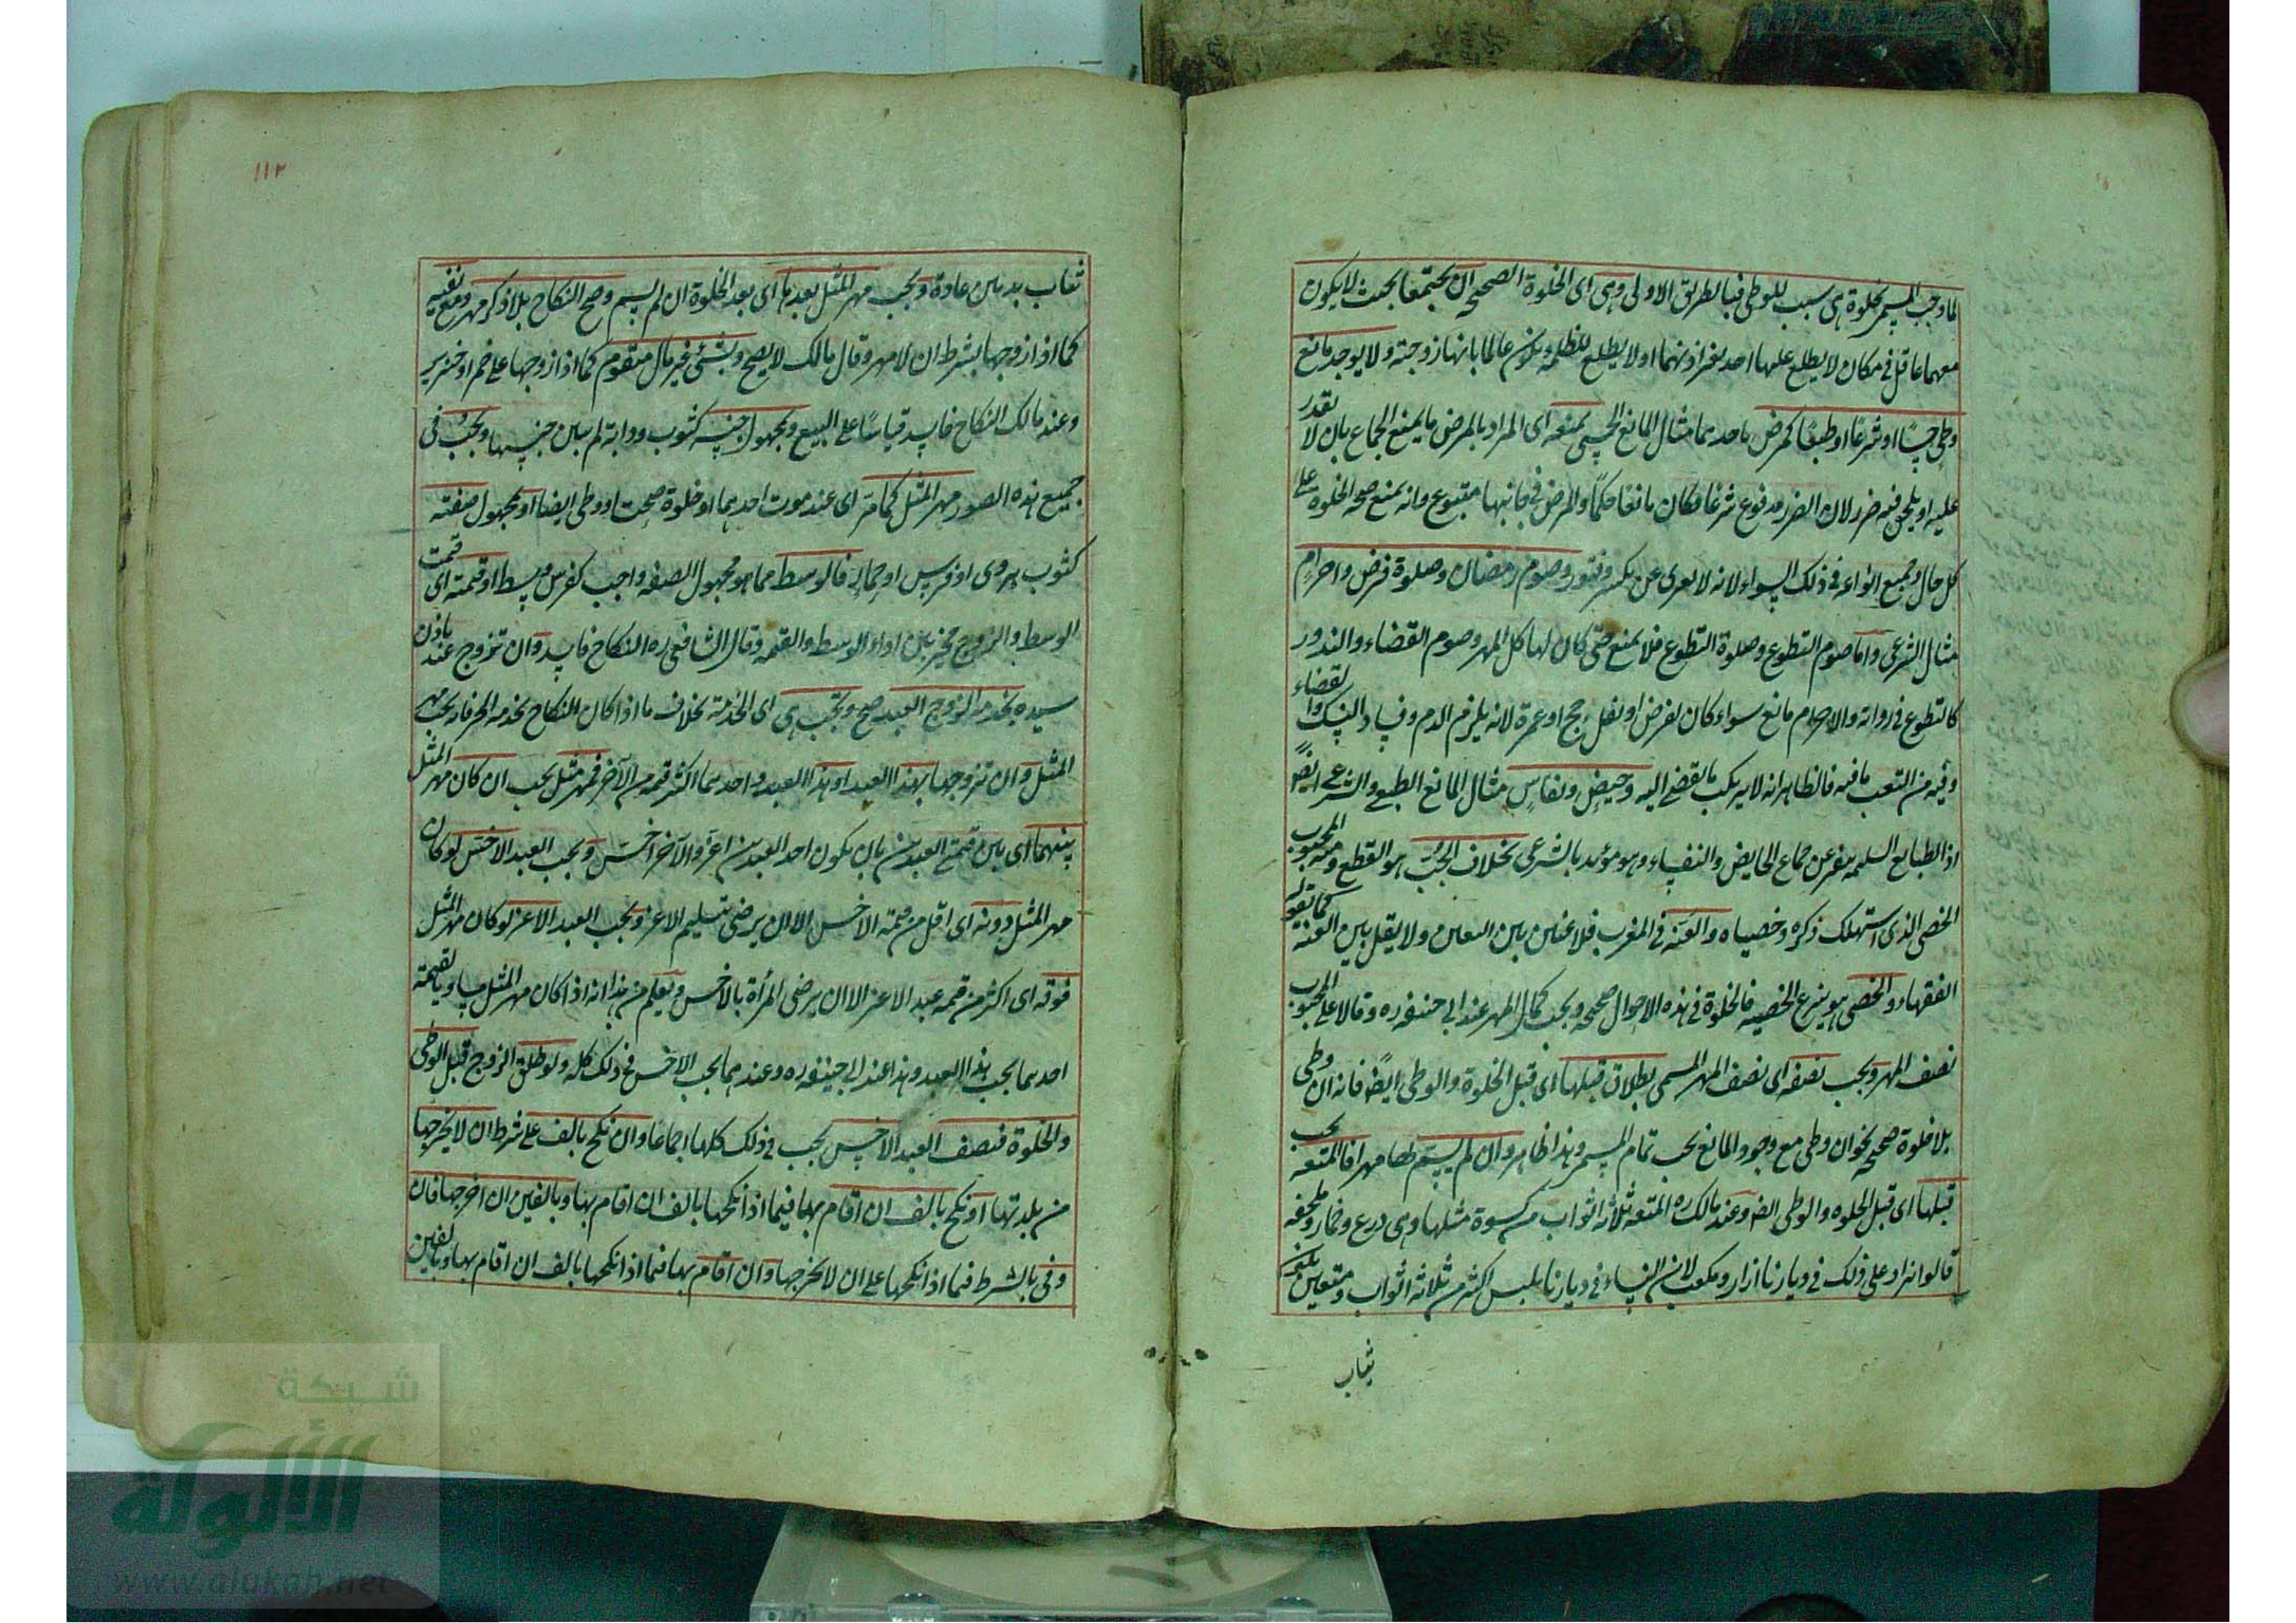 لما وجب المسمى بخلوة هى سبب للوطى فبالطريق الاولى وهى اى الخلوة الصحيحه ان يجتمعا بحيث لا يكون
معهما عاقل فى مكان لا يطلع عليهما احد بغير اذنهما او لا يطلع للظلمه ويكون عالما بانها زوجته ولا يوجد مانع
وطى حسًا او شرعًا او طبعًا كمرض باحدهما مثال المانع الحسى يمنعه اى المراد بالمرض ما يمنع الجماع بان لا يقدر
عليه او يلحق فيه ضرر لان الضرر مدفوع شرعًا فكان مانعًا حكمًا والمرض فى جانبها متنوع وانه يمنع صحه الخلوة على
كل حال وجميع انواعه فى ذلك السواء لانه لا يعرى عن تكسر وفتور وصوم رمضان وصلوة فرض واحرام
مثال الشرعى واما صوم التطوع وصلوة التطوع فلا يمنع حتى كان لها كل المهر وصوم القضاء والنذور
كالتطوع فى رواية والاحرام مانع سواء كان لفرض او نفل بحج او عمرة لانه يلزم الدم وفساد النسك والقضاء
وفيه من التعب ما فيه فالظاهر انه لا يرتكب ما يفضى اليه وحيض ونفاس مثال المانع الطبعى والشرعى ايضا
اذ الطبايع السليمه ينفر عن جماع الحايض والنفساء وهو مؤيد بالشرعى بخلاف الجب هو القطع ومنه المجبوب
الخصى الذى استهلك ذكره وخصياه والعنه فى المغرب فلا عنين بين العنين ولا يقل بين العنة كما يقوله
الفقهاء والخصى هو ينزع الخصيه فالخلوة فى هذه الاحوال صحيحه ويجب كمال المهر عند ابى حنيفه ره وقالا على المجبوب
نصف المهر ويجب نصفه اى نصف المهر المسمى بطلاق قبلها اى قبل الخلوة والوطى ايضًا فانه ان وطى
بلا خلوة صحيحه نحو ان وطى مع وجود المانع يجب تمام المسمى وهذا ظاهر وان لم يسم لها مهرا فالمتعه يجب
قبلها اى قبل الخلوه والوطى ايضا وعند مالك ره المتعه ثلاثه اثواب من كسوة مثلها وهى درع وخمار وملحفه
قالوا يزاد على ذلك فى ديارنا ازار ومكعب لان النساء فى ديارنا يلبس اكثر من ثلاثه اثواب
ثياب
١١٢
ثياب بدنهن عادة ويجب مهر المثل بعدها اى بعد الخلوة ان لم يسم وصح النكاح بلا ذكر مهر ومع نفيه
كما اذا زوجها بشرط ان لا مهر وقال مالك لا يصح وبشئ غير مال متقوم كما اذا زوجها على خمر او خنزير
وعند مالك النكاح فاسد قياسًا على البيع وبمجهول جنسه كثوب ودابة لم يبين جنسها ويجب فى
جميع هذه الصور مهر المثل كما مر اى عند موت احدهما او خلوة صحت او وطى ايضا او بمجهول صفته
كثوب هروى او فرس او حمار فالوسط مما هو مجهول الصفه واجب كفرس وسط او قيمته اى قيمت
الوسط والزوج مخير بين اداء الوسط والقيمه وقال الشافعى ره النكاح فاسد وان تزوج عبد باذن
سيده بخدمه الزوج العبد صح ويجب هى اى الخدمة بخلاف ما اذا كان النكاح بخدمه الحر فانه يجب مهر
المثل وان تزوجها بهذا العبد او بهذا العبد واحدهما اكثر قيمه من الآخر فمهر مثل يجب ان كان مهر المثل
بينهما اى بين قيمة العبدين بان يكون احد العبدين اعز والآخر اخس ويجب العبد الاخس لو كان
مهر المثل دونه اى اقل من قيمة الاخس الا ان يرضى بتسليم الاعز ويجب العبد الاعز لو كان مهر المثل
فوقه اى اكثر من قيمه عبد الاعز الا ان يرضى المرأة بالاخس ويعلم من هذا انه اذا كان مهر المثل مساويا لقيمة
احدهما يجب هذا العبد وهذا عند ابى حنيفه ره وعندهما يجب الاخس فى ذلك كله ولو طلق الزوج قبل الوطى
والخلوة فنصف العبد الاخس يجب فى ذلك كلها اجماعًا وان نكح بالف على شرط ان لا يخرجها
من بلدتها او نكح بالف ان اقام بها فيما اذا نكحها بالف ان اقام بها وبالفين ان اخرجها فان
وفى بالشرط فيما اذا نكحها على ان لا يخرجها وان اقام بها فيما اذا نكحها بالف ان اقام بها وبالفين
شبكة
الألوكة
www.alukah.net